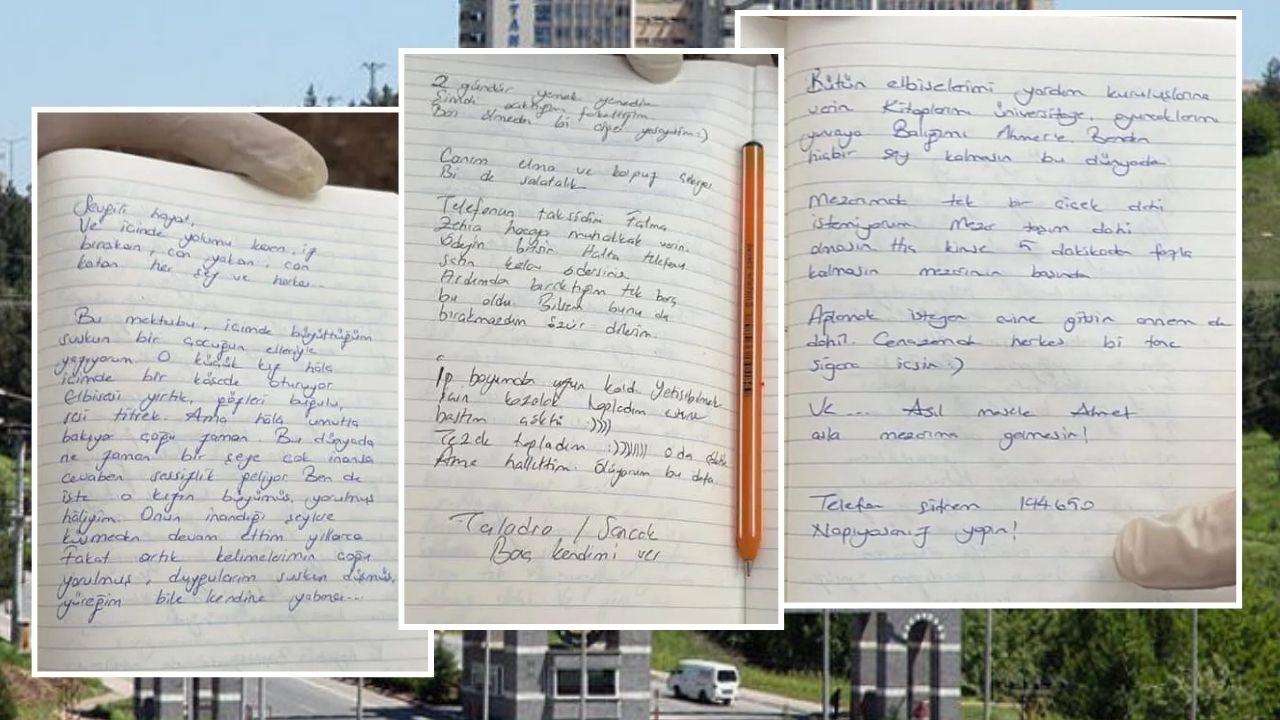 Sevgili hayat,
Ve içimde yolumu kesen, iz
bırakan, can yakan, can
katan her şey ve herkes...
Bu mektubu, içimde büyüttüğüm
suskun bir çocuğun elleriyle
yazıyorum. O küçük kız hâlâ
içimde bir köşede oturuyor.
Elbisesi yırtık, gözleri buğulu,
sesi titrek. Ama hâlâ umutla
bakıyor çoğu zaman. Bu dünyada
ne zaman bir şeye çok inansa
cevaben sessizlik geliyor. Ben de
işte o kızın büyümüş, yorulmuş
hâliyim. Onun inandığı şeylere
küsmeden devam ettim yıllarca
Fakat artık kelimelerimin çoğu
yorulmuş, duygularım suskun düşmüş,
yüreğim bile kendine yabancı...
2 gündür yemek yemedim
Şimdi acıktığımı farkettim
Bari ölmeden bi çiğe yeseydim :)
Canım elma ve karpuz çekiyor
Bi de salatalık
Telefonun taksidini Fatma
Zehra hocaya muhakkak verin.
Ödeyin bitsin. Hatta telefonu
satın kolay ödersiniz
Ardımda bıraktığım tek borç
bu oldu. Bilsem bunu da
bırakmazdım özür dilerim.
İp boyumdan uzun kaldı. Yetişebilmek
için kozalak topladım üstüne
bastım çöktü :))))
Tezek topladım :))))))) o da çöktü
Ama hallettim. Ölüyorum bu defa.
Taladro / Sancak
Boş kendimi ver
Bütün elbiselerimi yardım kuruluşlarına
verin Kitaplarımı üniversiteye, oyuncaklarımı
yuvaya Balığımı Ahmet'e. Benden
hiçbir şey kalmasın bu dünyada
Mezarımda tek bir çiçek dahi
istemiyorum. Mezar taşım dahi
olmasın. Hiç kimse 5 dakikadan fazla
kalmasın mezarımın başında
Ağlamak isteyen evine gitsin annem de
dahil. Cenazemde herkes bi tane
sigara içsin :)
Ve... Asıl mesele Ahmet
asla mezarıma gelmesin!
Telefon şifrem 144650
Napıyosanız yapın!